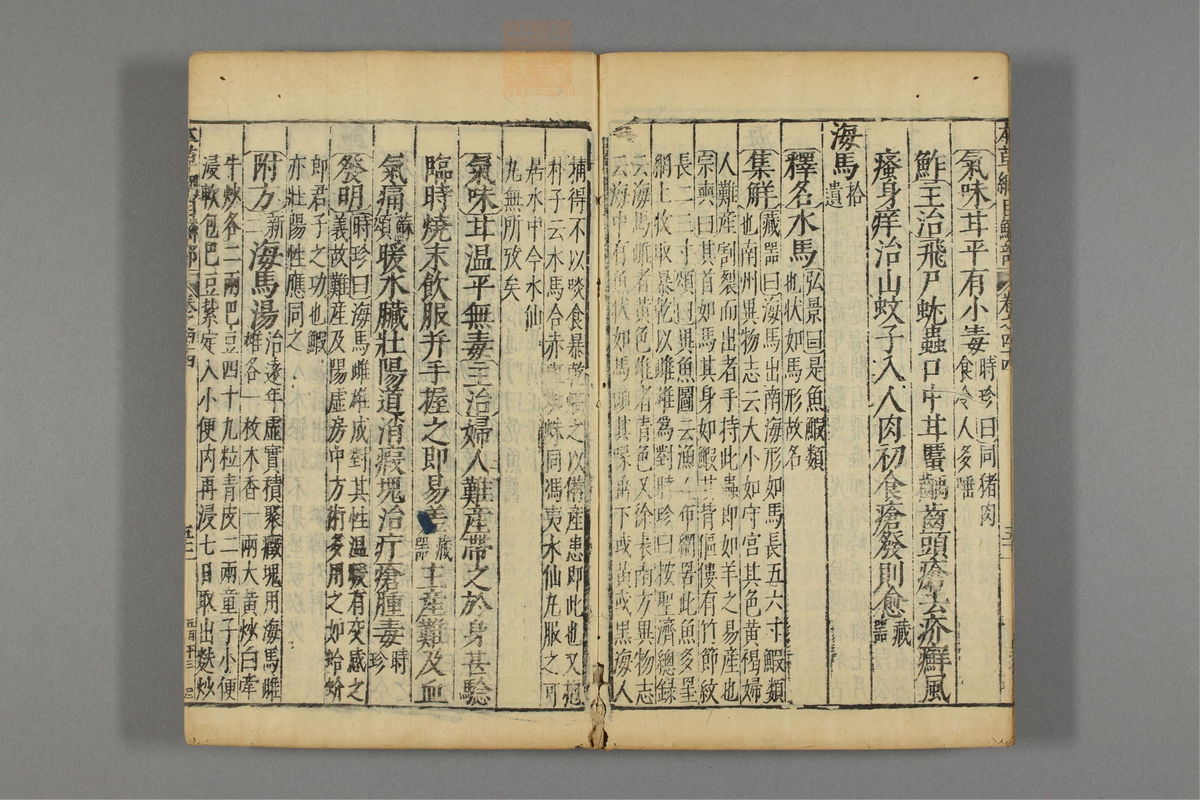 氣味甘平有小毒時珍曰同猪肉
食令人多唾
鮓主治飛尸蚘蟲口中甘䘌齲齒頭瘡去疥癬風
瘙身痒治山蚊子入人肉初食瘡發則愈藏
器
海馬拾
遺
釋名水馬弘景曰是魚鰕類
也狀如馬形故名
集解藏器曰海馬出南海形如馬長五六寸鰕類
也南州異物志云大小如守宮其色黃褐婦
人難產割裂而出者手持此蟲即如羊之易產也
宗奭曰其首如馬其身如鰕其背傴僂有竹節紋
長二三寸頌曰異魚圖云漁人布網罟此魚多罣
網上收取暴乾以雌雄為對時珍曰按聖濟總錄
云海馬雌者黃色雄者青色又徐表南方異物志
云海中有魚狀如馬頭其喙垂下或黃或黑海人
捕得不以啖食暴乾之以備產患即此也又
朴子云水馬合赤蛛同馮夷水仙丸服之可
居水中今水仙
丸無所攷矣
氣味甘温平無毒主治婦人難產帶之於身甚驗
臨時燒末飲服并手握之即易產藏
器主產難及血
氣痛蘇
頌暖水臟壯陽道消瘕塊治疔瘡腫毒時
珍
發明時珍曰海馬雌雄成對其性温暖有交感之
義故難產及陽虛房中方術多用之如蛤蚧
即君子之功也鰕
亦壯陽性應同之
附方新海馬湯治遠年虛實積聚癥塊用海馬雌
雄各一枚木香一兩大黃炒白牽
牛炒各二兩巴豆四十九粒青皮二兩童子小便
浸軟包巴豆紮定入小便內再浸七日取出麩炒